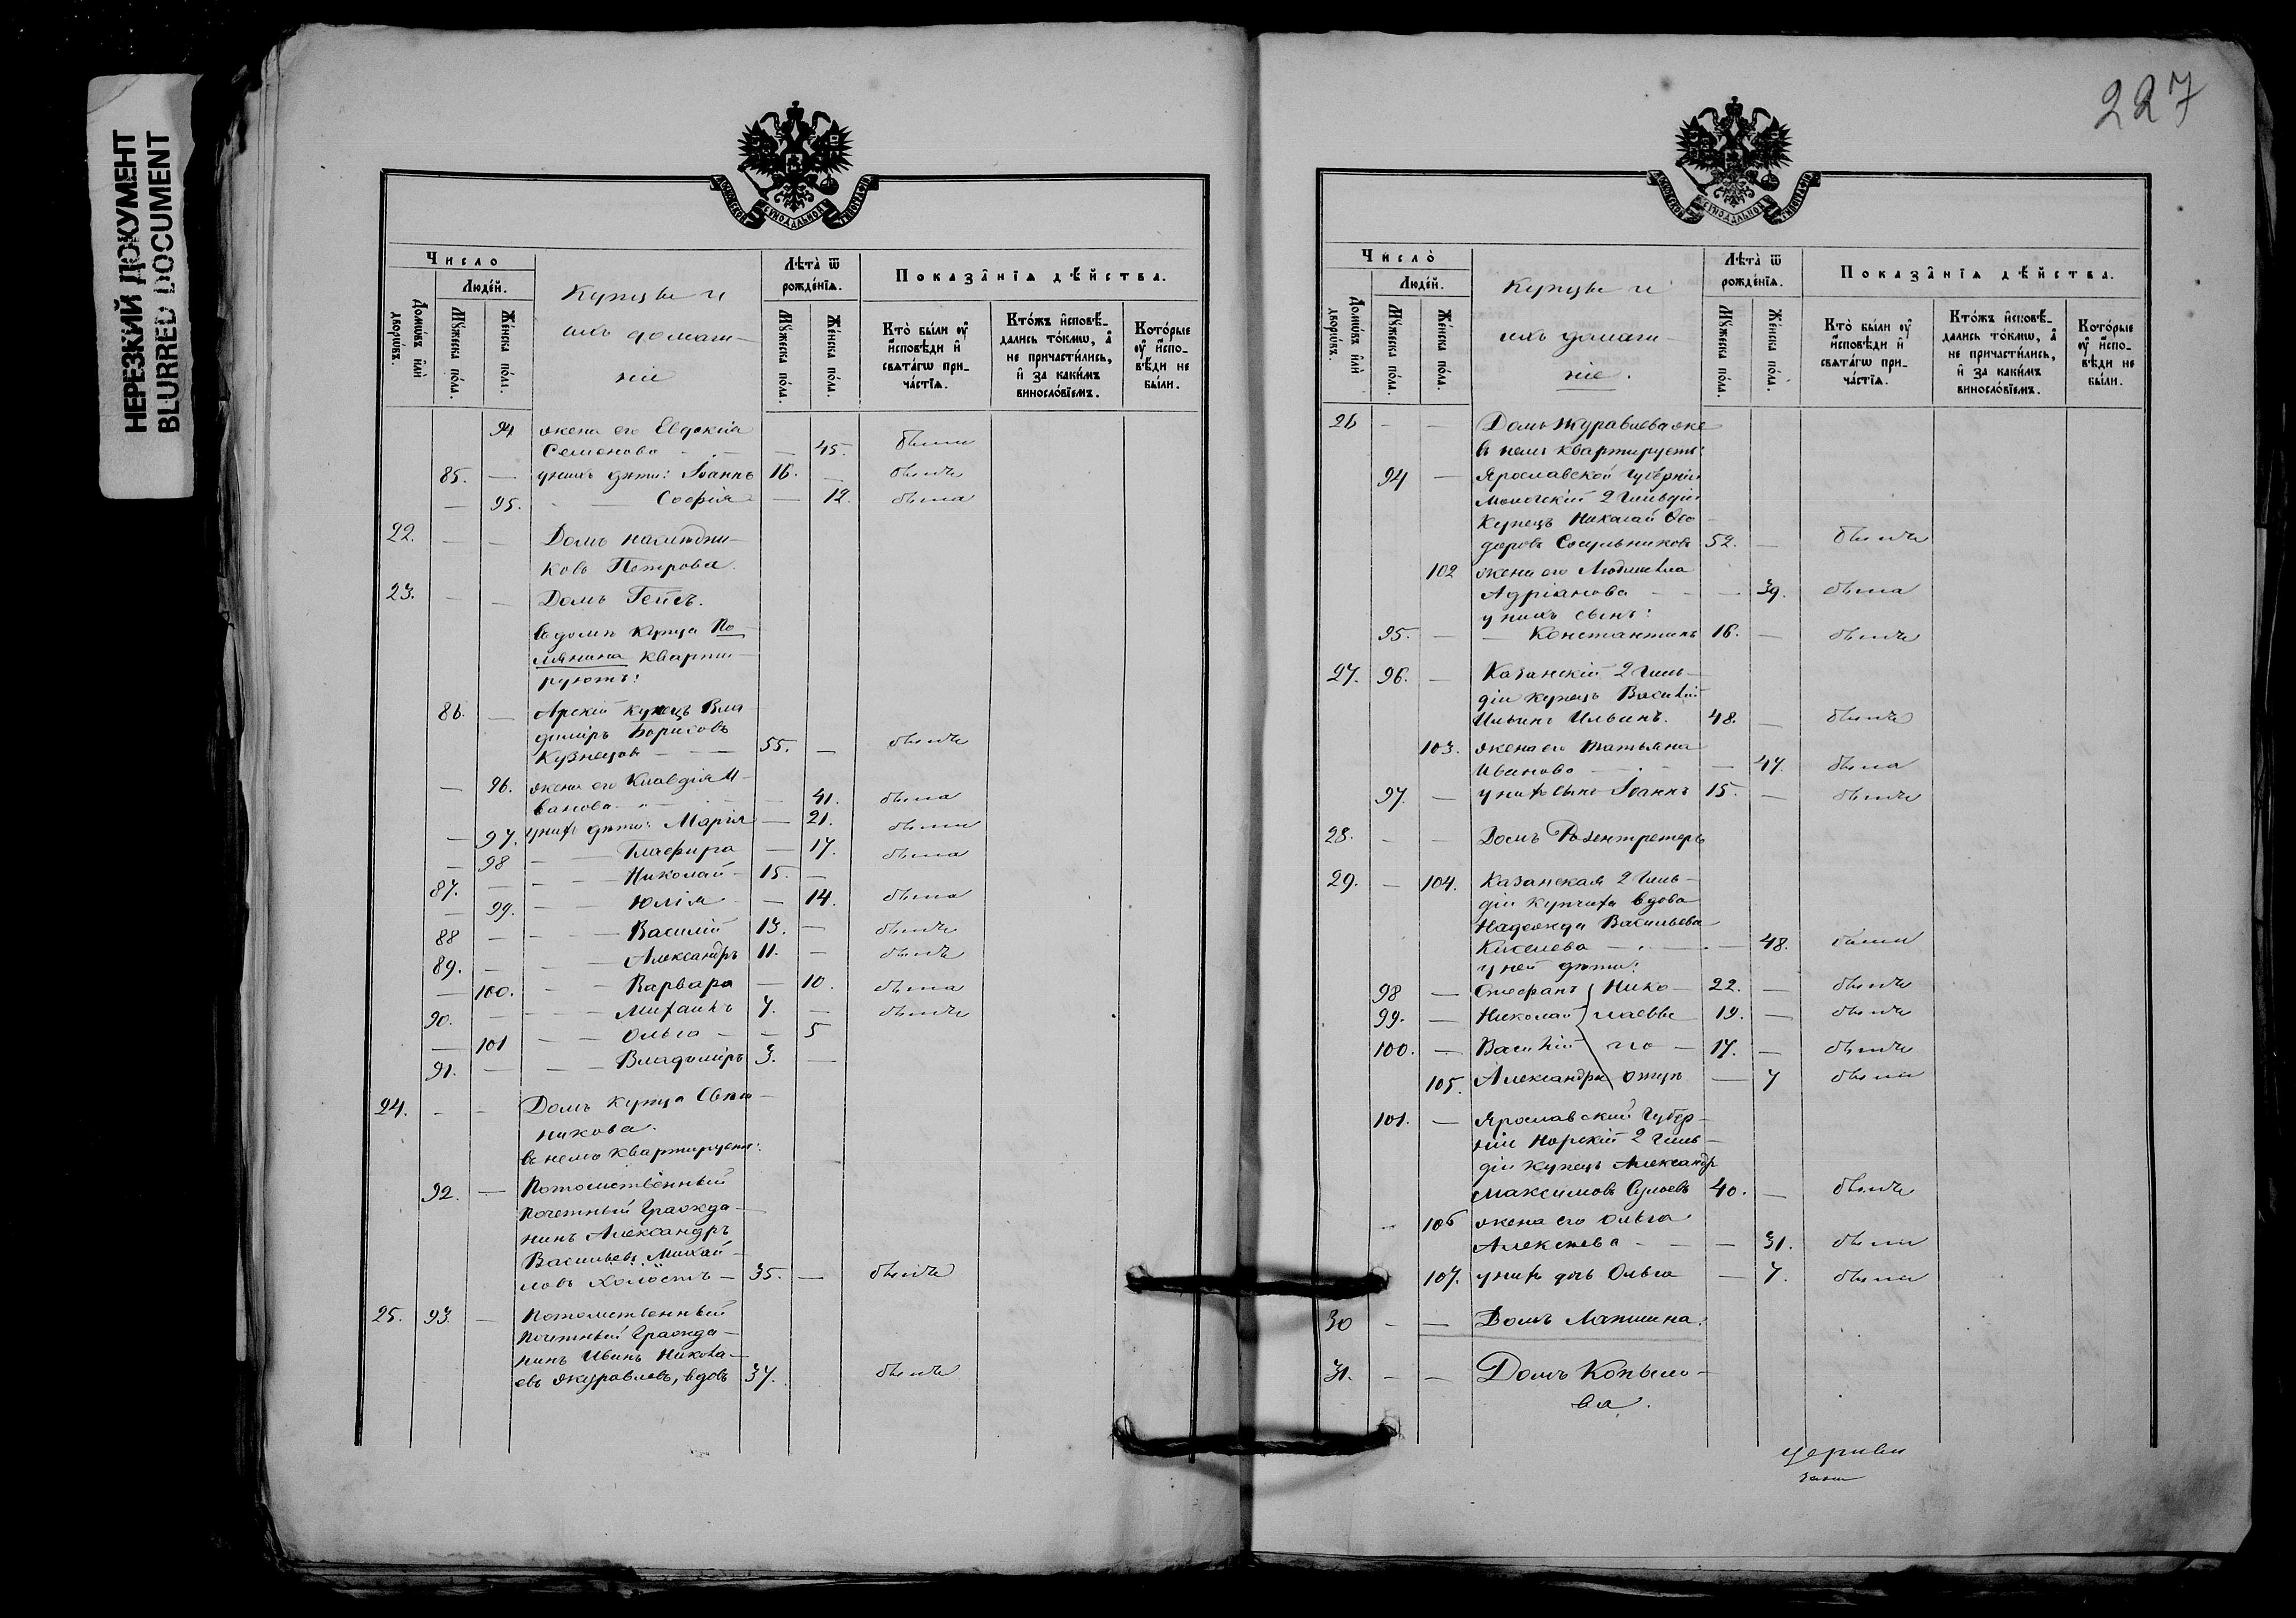 НЕРЕЗКИЙ ДОКУМЕНТ
BLURRED DOCUMENT
МОСКОВСКОЙ СѴНОДАЛЬНОЙ ТИПОГРАФІИ
Число
Людей.
Домѡвъ или дворѡвъ.
Мꙋжеска пола.
Женска пола.
Купцы и
ихъ домаш-
ніи
Лѣта ѿ рожденія.
Мꙋжеска пола.
Женска пола.
Показанія дѣйства.
Кто были оу исповѣди и свѧтагѡ причастїѧ.
Ктожъ исповѣдались токмѡ, а не причастились, и за какимъ винословїемъ.
Которые оу исповѣди не были.
94 жена его Евдокія
Семенова — 45. была
85. — у нихъ дѣти: Іоаннъ 16. — былъ
— 95. — Софія — 12. была
22. — — Домъ наслѣдни-
ковъ Петрова.
23. — — Домъ Гейсъ.
въ домѣ купца По-
мянина кварти-
руютъ:
86. — Арскій купецъ Вла-
диміръ Борисовъ
Кузнецовъ — 55. — былъ
— 96. жена его Клавдія И-
ванова — 41. была
— 97. у нихъ дѣти: Марія — 21. была
— 98 — Глафира — 17. была
87. — Николай — 15. —
— 99. — Юлія — 14. была
88 — Василій 13. — былъ
89. — Александръ 11. — былъ
— 100. — Варвара — 10. была
90. — Михаилъ 7. — былъ
— 101 — Ольга — 5
91. — Владиміръ 3. —
24. — — Домъ купца Свѣш-
никова.
въ немъ квартируетъ:
92. — Потомственный
почетный гражда-
нинъ Александръ
Васильевъ Михай-
ловъ холостъ — 35. — былъ
25. 93. — Потомственный
почетный гражда-
нинъ Иванъ Никола-
евъ Журавлевъ, вдовъ 37. былъ
227
МОСКОВСКОЙ СѴНОДАЛЬНОЙ ТИПОГРАФІИ
Число
Людей.
Домѡвъ или дворѡвъ.
Мꙋжеска пола.
Женска пола.
Купцы и
ихъ домаш-
ніе.
Лѣта ѿ рожденія.
Мꙋжеска пола.
Женска пола.
Показанія дѣйства.
Кто были оу исповѣди и свѧтагѡ причастїѧ.
Ктожъ исповѣдались токмѡ, а не причастились, и за какимъ винословїемъ.
Которые оу исповѣди не были.
26 — — Домъ Журавлева же
въ немъ квартируетъ:
94 — Ярославской губерніи
Мологскій 2 гильдіи
купецъ Николай Ѳео-
доровъ Сосульниковъ 52. — былъ
102 жена его Людмила
Адріанова — 39. была
у нихъ сынъ:
95. — Константинъ 16. — былъ
27. 96. — Казанскій 2 гиль-
діи купецъ Василій
Ильинъ Ильинъ. 48. — былъ
103. жена его Татьяна
Иванова — 47. была
97. — у нихъ сынъ Іоаннъ 15. — былъ
28. — — Домъ Розентретеръ
29. — 104. Казанская 2 гиль-
діи купчиха вдова
Надежда Васильева
Киселева — 48. была
у ней дѣти:
98 — Стефанъ Нико- 22. — былъ
99. — Николай лаевы 19. — былъ
100. — Василій по — 17. — былъ
105. Александра отцу — 7 была
101. — Ярославской губер-
ніи Норскій 2 гиль-
діи купецъ Александръ
Максимовъ 40. — былъ
106 жена его Ольга
Алексѣева — 31. была
107. у нихъ дочь Ольга — 7. была
30 — — Домъ Лапшина.
31. — — Домъ Копыло-
ва.
церкви